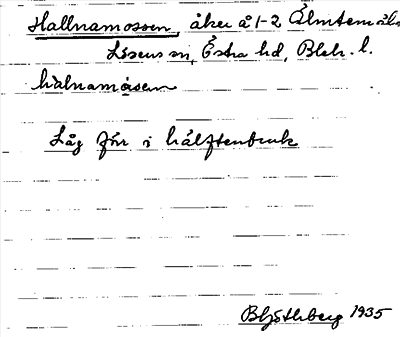 Hallnamossen, åker å 1-2 Elmtemåla
Lösens sn, Östra hd, Blek. l.
hàlnamåsen
Låg för i hälftenbruk
1935